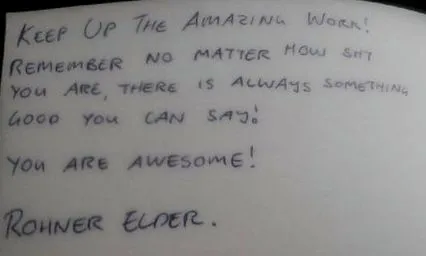 KEEP UP THE AMAZING WORK!
REMEMBER NO MATTER HOW SHY
YOU ARE, THERE IS ALWAYS SOMETHING
GOOD YOU CAN SAY!
YOU ARE AWESOME!
ROHNER ELDER.